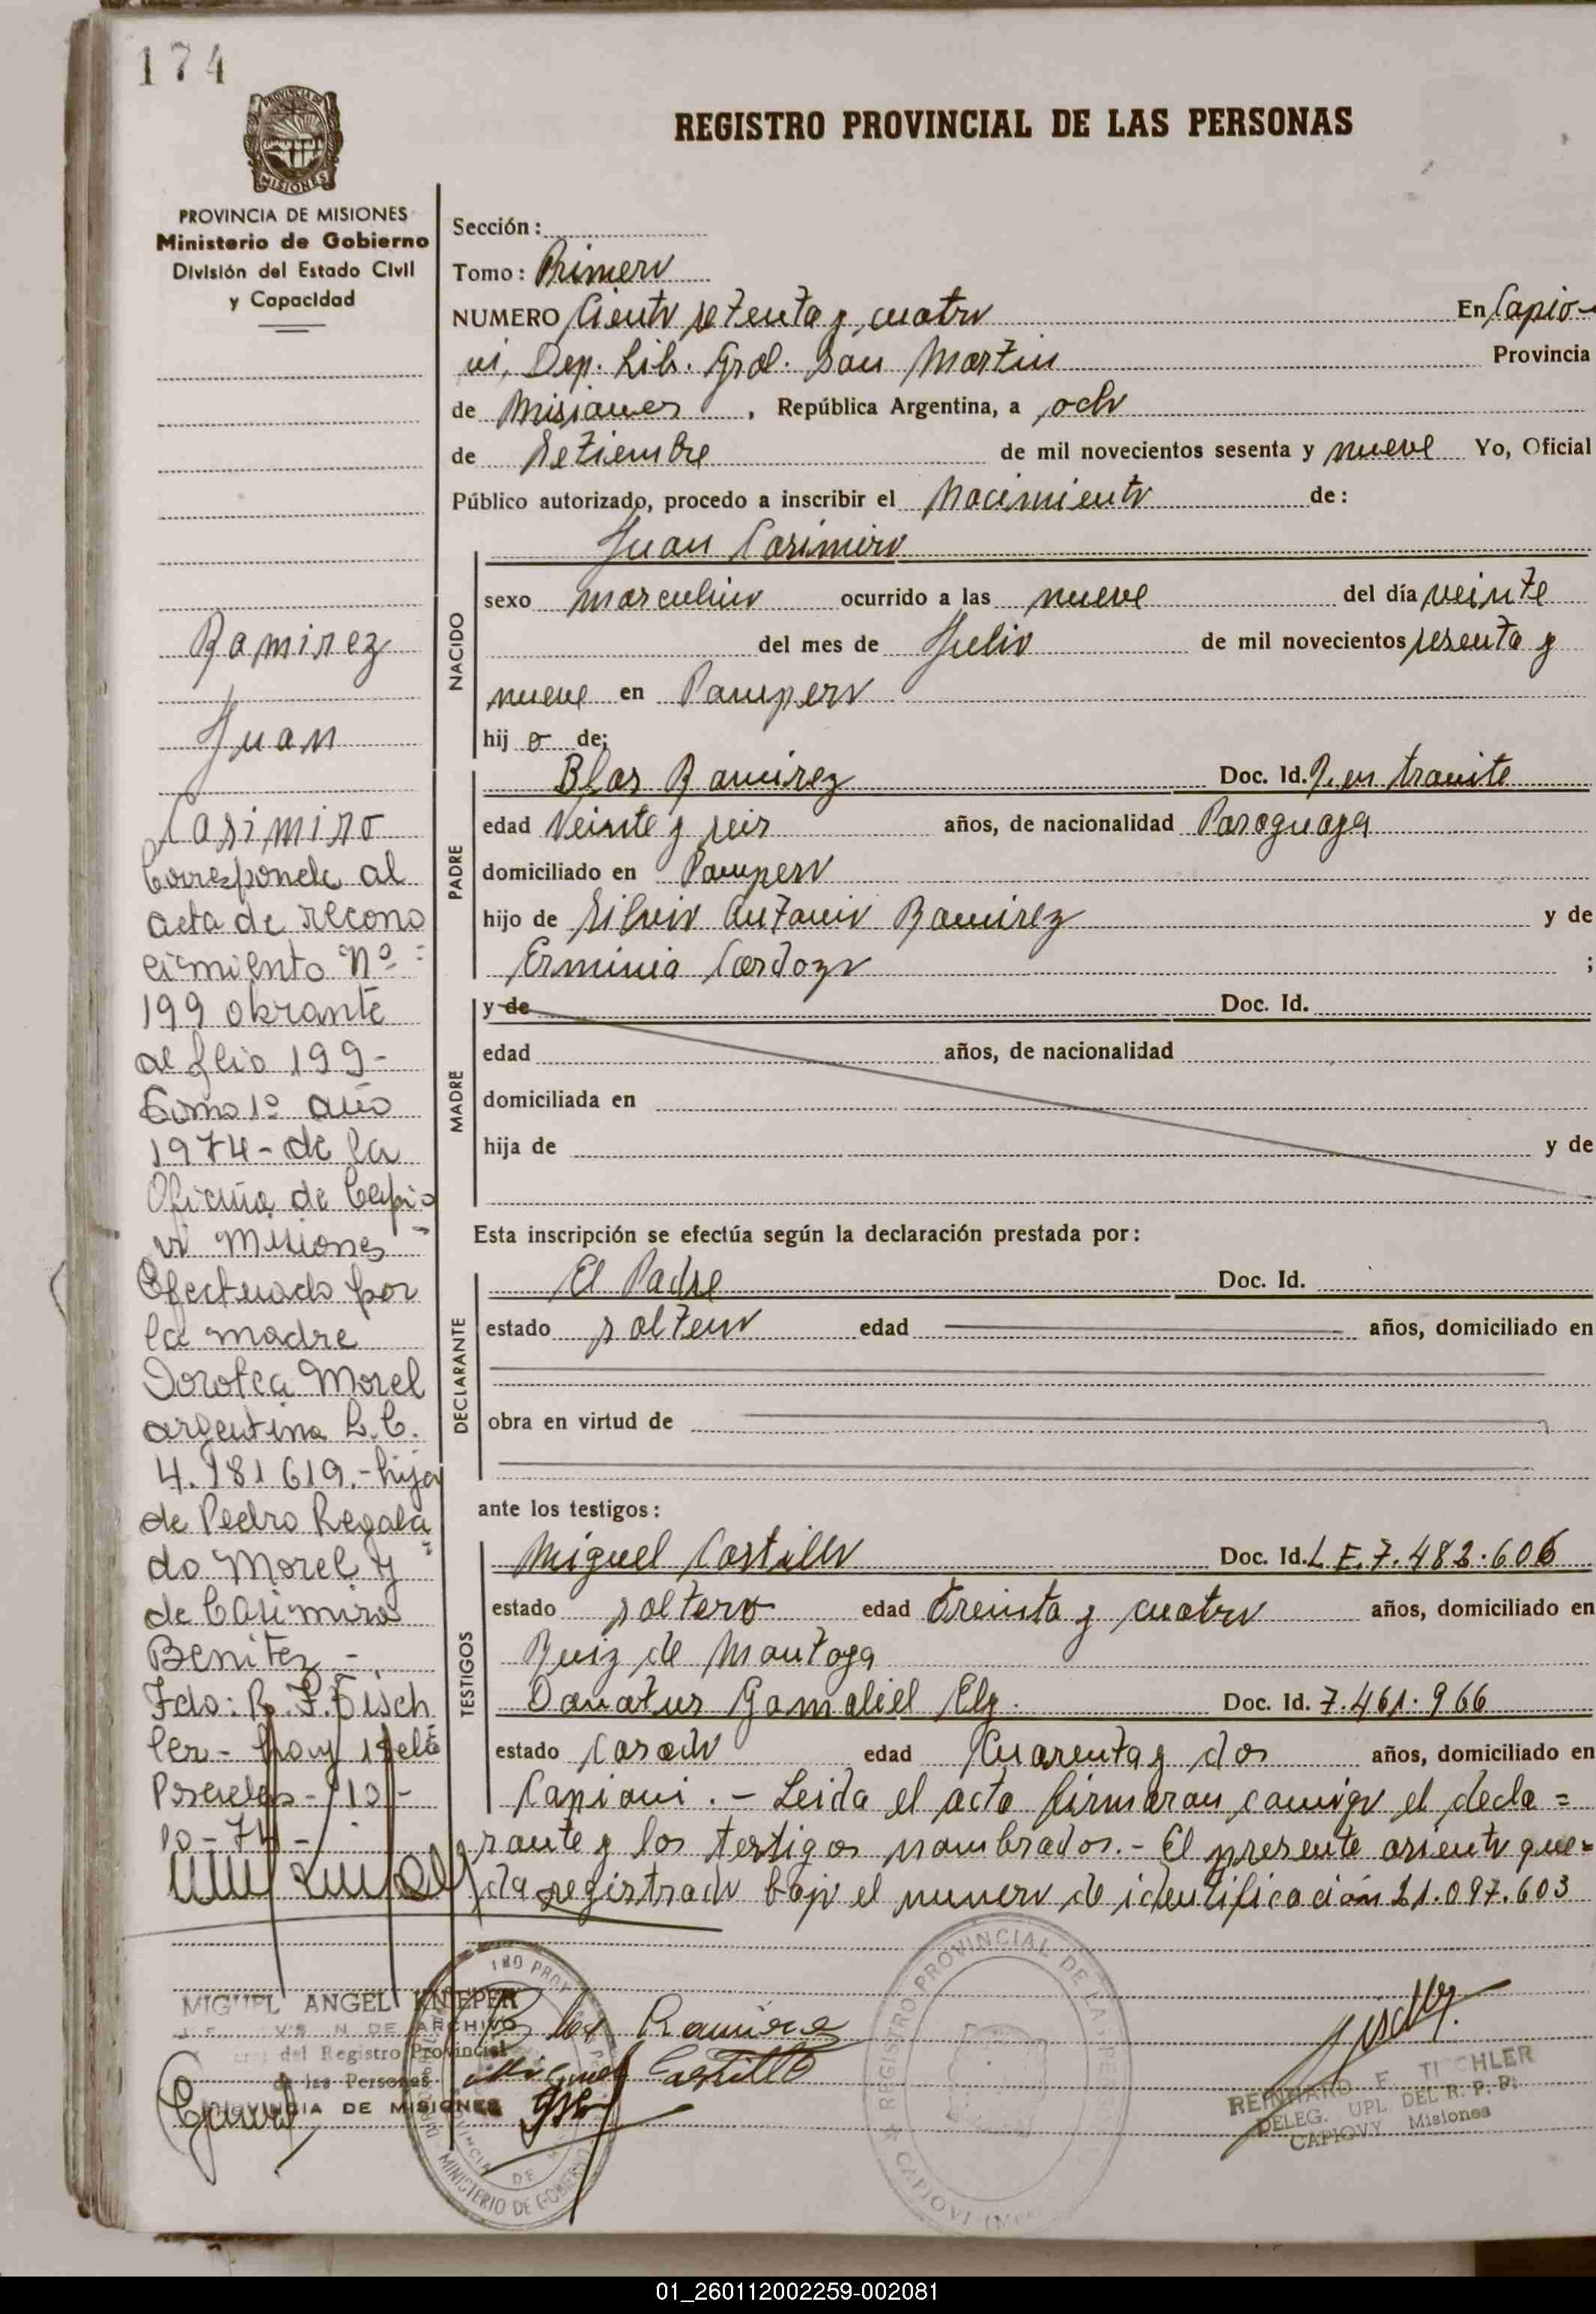 174
PROVINCIA DE MISIONES
Ministerio de Gobierno
División del Estado Civil
y Capacidad
REGISTRO PROVINCIAL DE LAS PERSONAS
Sección:
Tomo: Primero
NUMERO Ciento setenta y cuatro En Capio-
vi, Dep. Lib. Gral. San Martin Provincia
de Misiones, República Argentina, a ocho
de Setiembre de mil novecientos sesenta y nueve Yo, Oficial
Público autorizado, procedo a inscribir el Nacimiento de:
NACIDO
Juan Casimiro
sexo masculino ocurrido a las nueve del día veinte
del mes de Julio de mil novecientos sesenta y
nueve en Pampero
hij o de;
PADRE
Blas Ramirez Doc. Id. P. en tramite
edad Veinte y seis años, de nacionalidad Paraguaya
domiciliado en Pampero
hijo de Silvio Antonio Ramirez y de
Erminia Cardozo ;
MADRE
y de Doc. Id.
edad años, de nacionalidad
domiciliada en
hija de y de
Esta inscripción se efectúa según la declaración prestada por:
DECLARANTE
El Padre Doc. Id.
estado soltero edad años, domiciliado en
obra en virtud de
ante los testigos:
TESTIGOS
Miguel Castillo Doc. Id. L E. 7.482.606
estado soltero edad treinta y cuatro años, domiciliado en
Ruiz de Montoya
Donatus Gamaliel Elg. Doc. Id. 7.461.966
estado Casado edad Cuarenta y dos años, domiciliado en
Capiovi. - Leida el acta firmaran conmigo el decla=
rante y los testigos nombrados. - El presente asiento que=
da registrado bajo el numero de identificación 21.097.603
Ramirez
Juan
Casimiro
Corresponde al
acta de recono
cimiento Nº
199 obrante
al flio 199-
Tomo 1º año
1974- de la
Oficina de Capio
vi Misiones
Efectuado por
la madre
Dorotea Morel
argentina L.C.
4.181619.- hija
de Pedro Regala
do Morel y
de Casimira
Benitez -
Fdo: R. F. Tisch
ler -
Posadas - 10 -
10 - 74 -
MIGUEL ANGEL KNIEPER
DE ARCHIVO
del Registro Provincial
de las Personas
PROVINCIA DE MISIONES
Blas Ramirez
Miguel Castillo
MINISTERIO DE GOBIERNO
REGISTRO PROVINCIAL DE LA
CAPIOVI
REINHARD F. TISCHLER
DELEG. UPL DEL R. P. P.
CAPIOVY Misiones
01_260112002259-002081